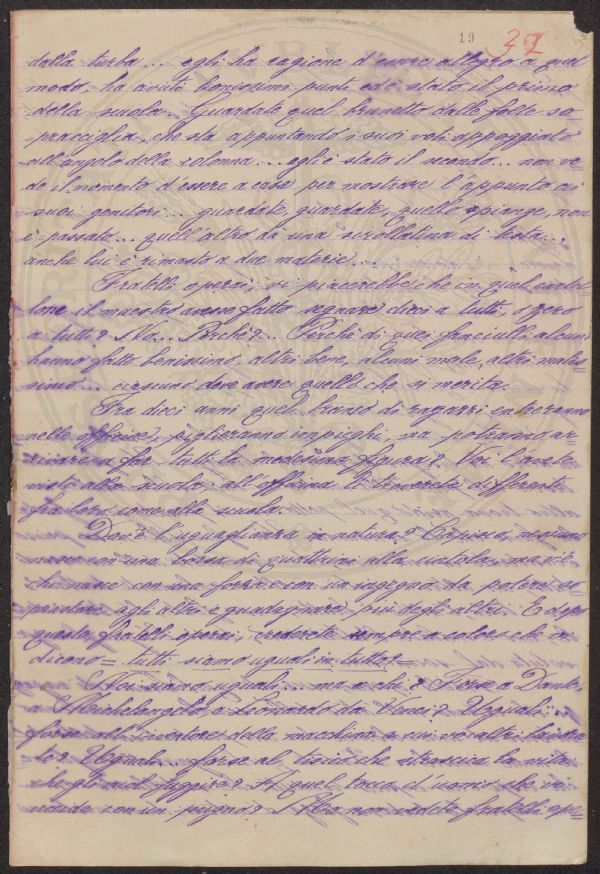 19 39
dalla turba... egli ha ragione d'essere allegro a quel
modo, ha avuti bonissimi punti ed è stato il primo
della scuola. Guardate quel brunetto dalle folte so=
pracciglia, che sta appuntando i suoi voti appoggiato
all'angolo della colonna.... egli è stato il secondo... non ve=
de il momento d'essere a casa per mostrare l'appunto ai
suoi genitori... guardate, guardate, quello piange, non
è passato... quell'altro dà una scrollatina di testa...
anche lui è rimasto a due materie...
Fratelli operai, vi piacerebbe che in quel cartel=
lone il maestro avesse fatto segnare dieci a tutti, o zero
a tutti? No... Perchè?... Perchè di quei fanciulli alcuni
hanno fatto benissimo, altri bene, alcuni male, altri males=
simo... ciascuno deve avere quello che si merita.
Fra dieci anni quel branco di ragazzi entreranno
nelle officine, piglieranno impieghi, ma potranno ar=
rivare a far tutti la medesima figura? Voi li avete
visti alla scuola: all'officina li troverete differenti
fra loro come alla scuola.
Dov'è l'uguaglianza in natura? Capisco, nessuno
nasce con una borsa di quattrini alla cintola, ma c'è
chi nasce con una forza e con un ingegno da potere so=
piantare agli altri e guadagnare più degli altri. E dopo
questo, fratelli operai, crederete sempre a coloro che vi
dicono= tutti siamo uguali in tutto?
Noi siamo uguali... ma a chi? Forse a Dante,
a Michelangelo, a Leonardo da Vinci? Uguali...
forse all'inventore della macchina a cui voi altri lavora=
te? Uguali... forse al tisico che strascica la vita
che gli vuol fuggire? A quel tocco d'uomo che vi
manda con un pugno? Ma non vedete fratelli ope=